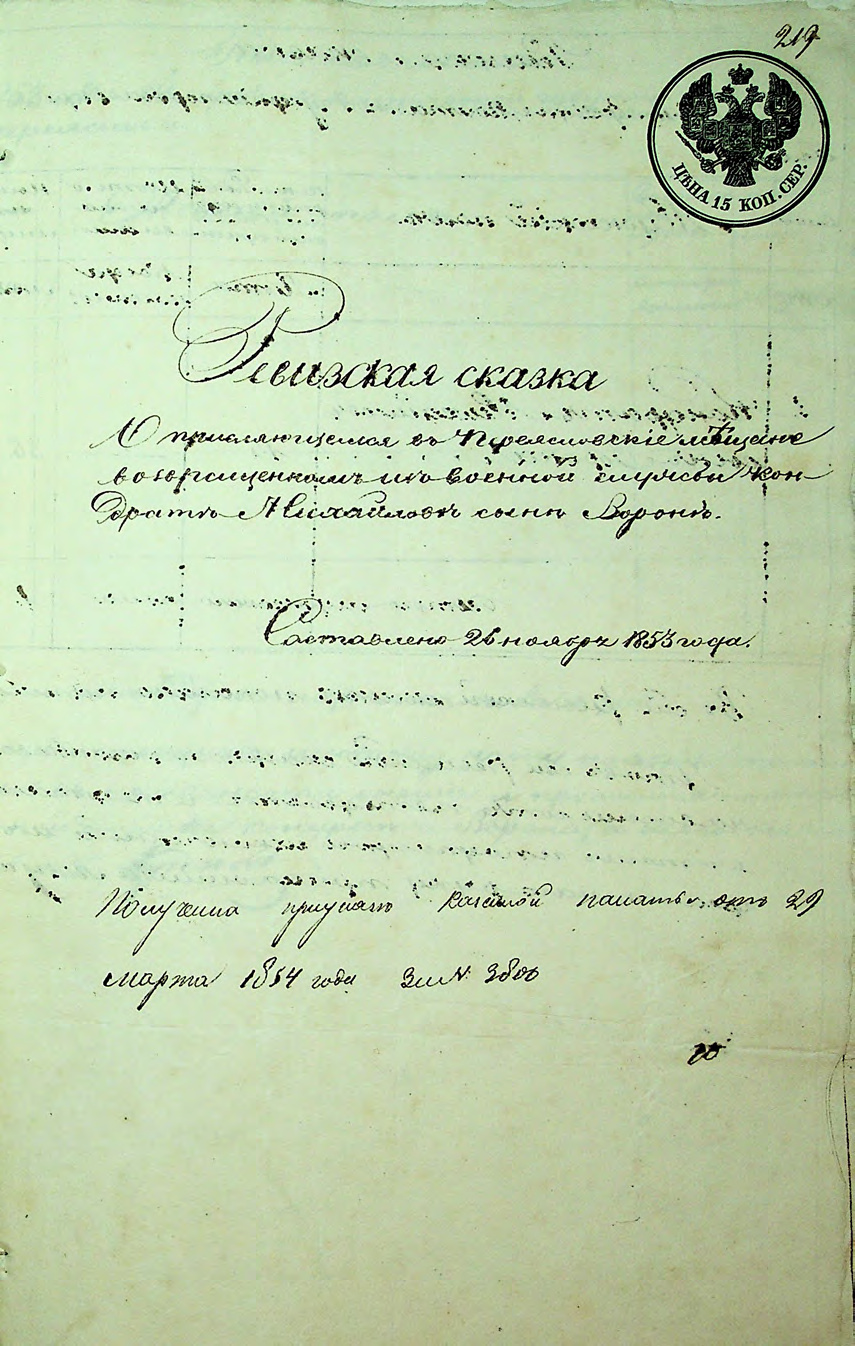 219
ЦѢНА 15 КОП. СЕР.
Ревизская сказка
О причисляющемся въ Переясловскіе мѣщане
возвращенномъ изъ военной службы Кон-
дратѣ Михайловѣ сынѣ Воронѣ.
Составлена 26 ноября 1853 года.
Получена при указѣ казенной палаты отъ 29
марта 1854 года за №